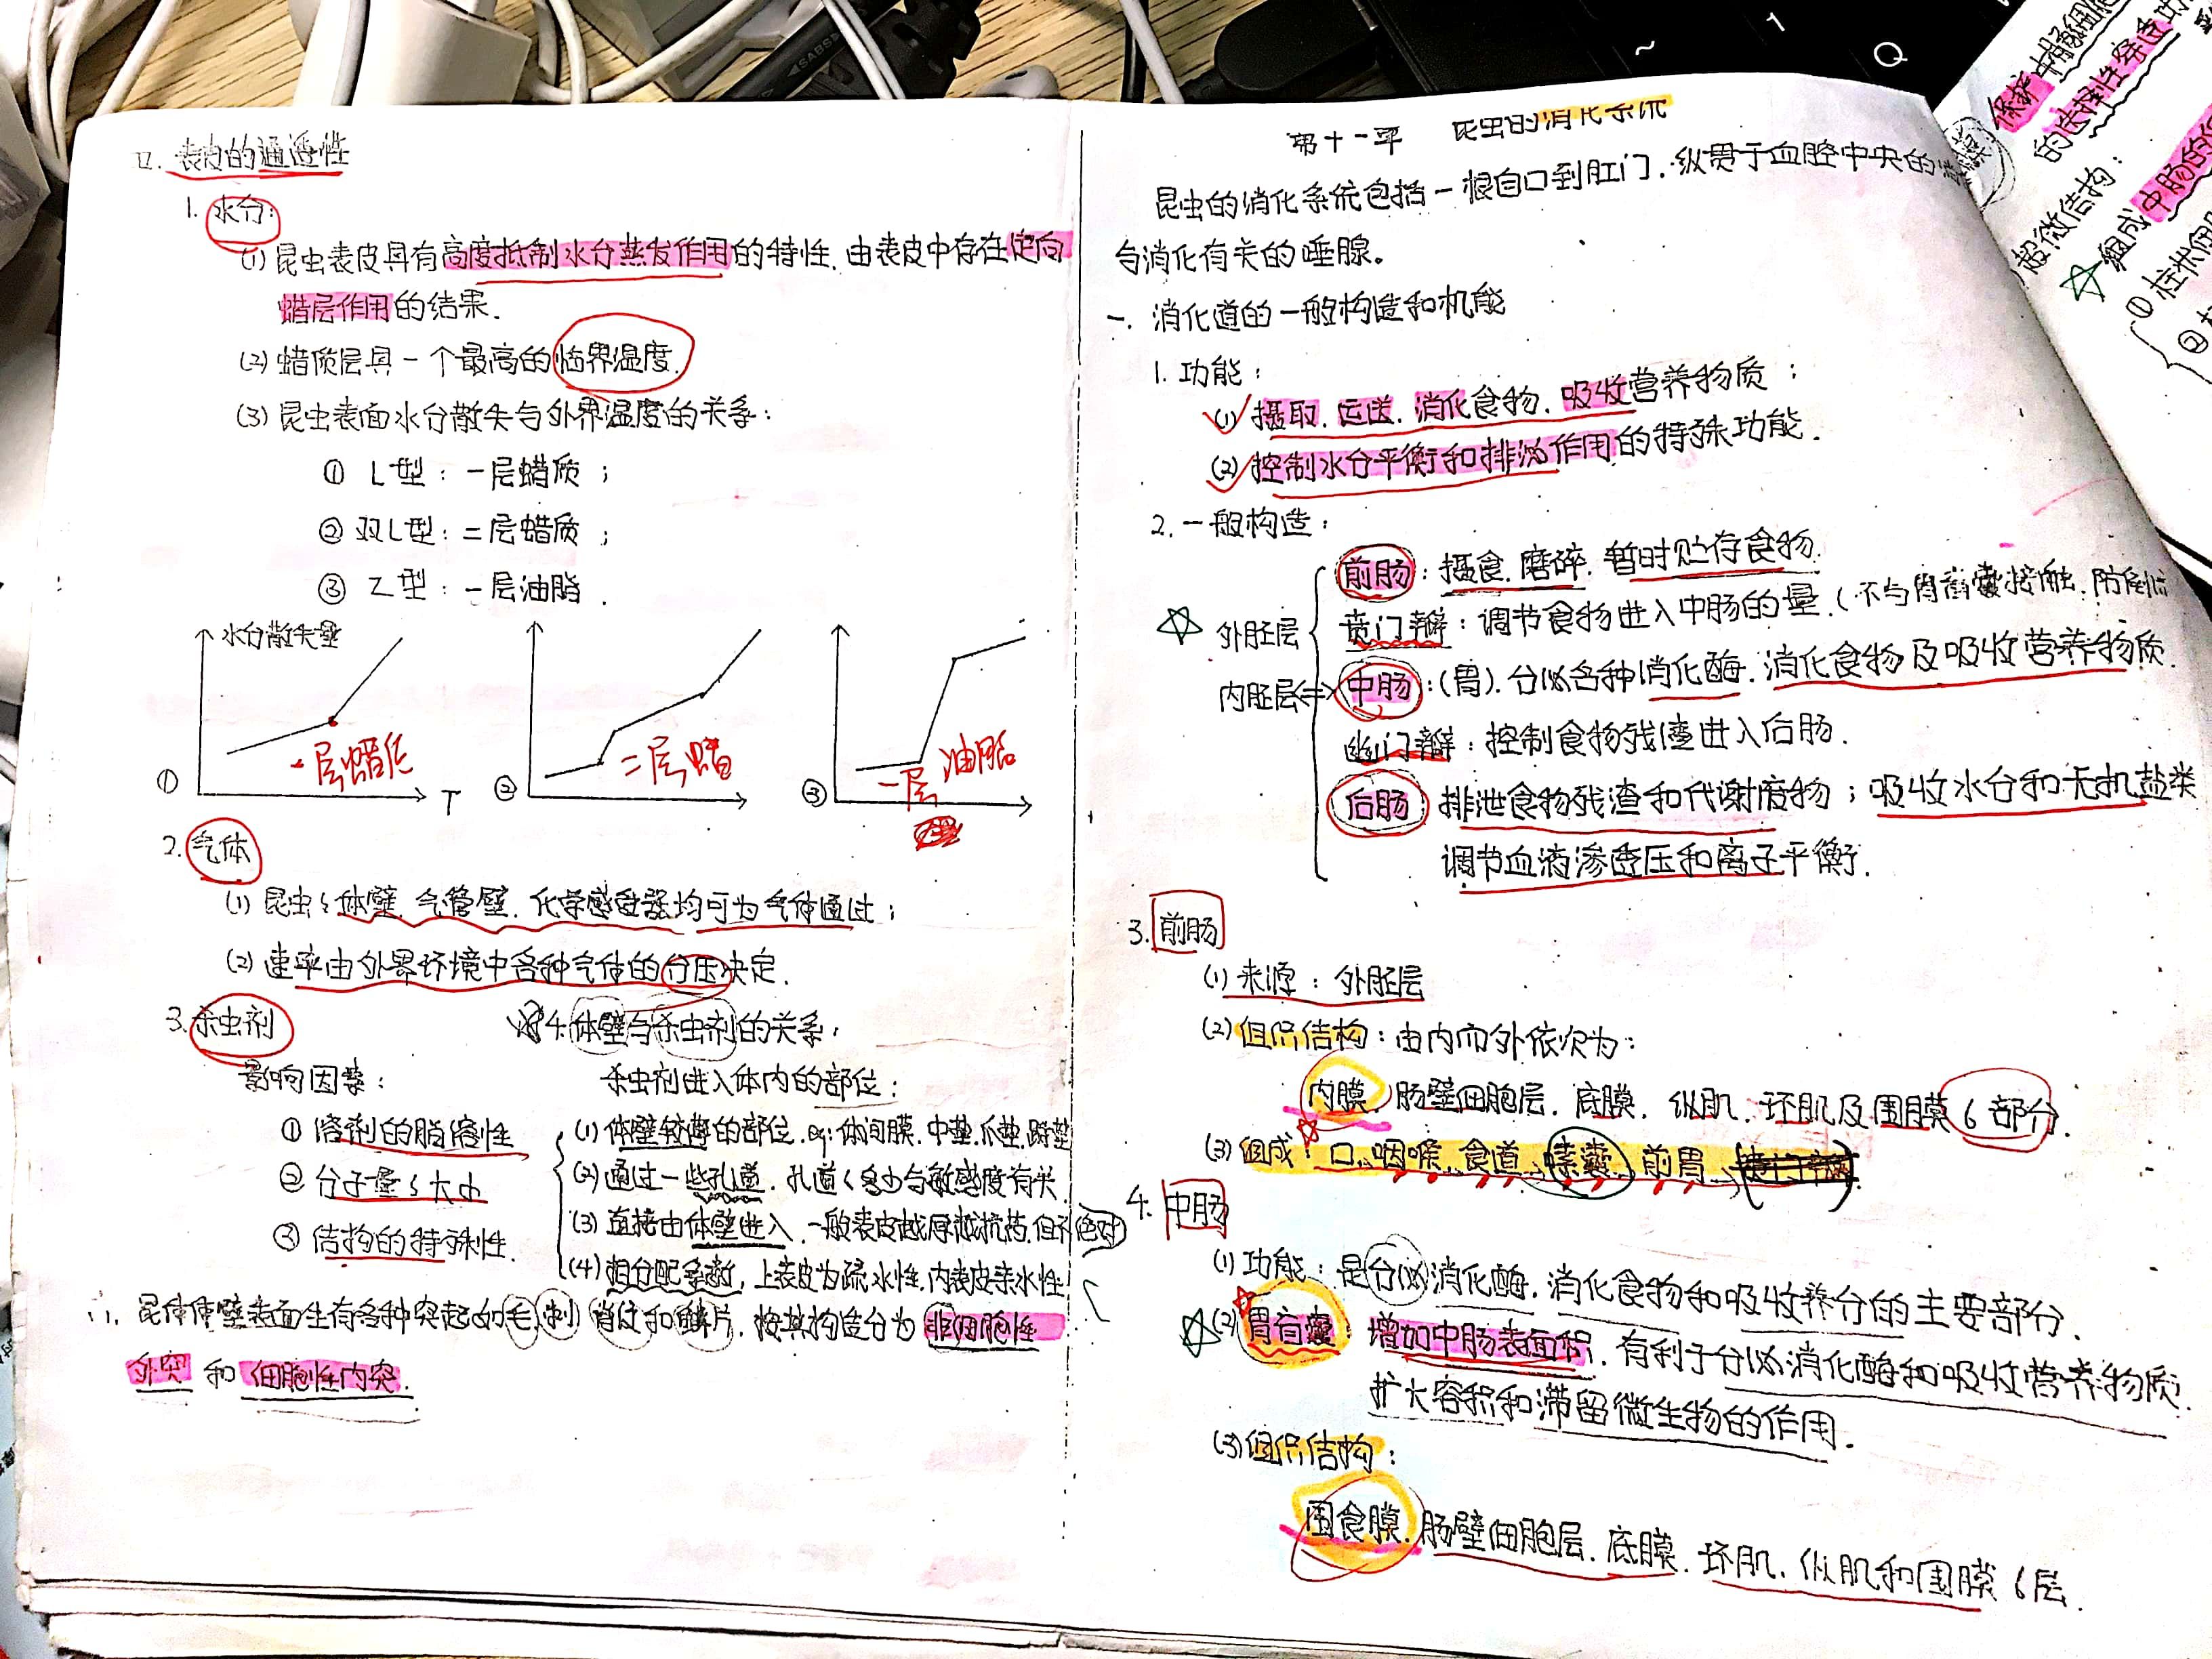 表皮的通透性
1. 水分:
(1) 昆虫表皮具有高度抵制水分蒸发作用的特性, 由表皮中存在定向
蜡层作用的结果.
(2) 蜡质层具一个最高的临界温度.
(3) 昆虫表面水分散失与外界温度的关系:
① L型: 一层蜡质;
② 双L型: 二层蜡质;
③ Z型: 一层油脂.
水分散失量
一层蜡质
二层蜡
一层 油脂
① T ② ③
2. 气体
(1) 昆虫的体壁. 气管壁. 化学感受器均可为气体通过;
(2) 速率由外界环境中各种气体的分压决定.
3. 杀虫剂
影响因素:
① 溶剂的脂溶性
② 分子量的大小
③ 结构的特殊性.
4. 体壁与杀虫剂的关系:
杀虫剂进入体内的部位:
(1) 体壁较薄的部位. eg: 体间膜. 中垫. 爪垫. 跗垫
(2) 通过一些孔道. 孔道的多少与敏感度有关.
(3) 直接由体壁进入. 一般表皮越厚越抗药. 但不绝对
(4) 相分配系数, 上表皮为疏水性. 内表皮亲水性.
昆体体壁表面生有各种突起如毛. 刺 和鳞片. 按其构造分为非细胞性
外突 和 细胞性内突.
第十一章 昆虫的消化系统
昆虫的消化系统包括一根自口到肛门. 纵贯于血腔中央的
与消化有关的唾腺。
一. 消化道的一般构造和机能
1. 功能:
(1) 摄取. 运送. 消化食物. 吸收营养物质;
(2) 控制水分平衡和排泌作用的特殊功能.
2. 一般构造:
前肠: 摄食. 磨碎. 暂时贮存食物.
外胚层 贲门瓣: 调节食物进入中肠的量. (不与胃盲囊接触. 防倒流
内胚层 <=> 中肠: (胃). 分泌各种消化酶. 消化食物及吸收营养物质.
幽门瓣: 控制食物残渣进入后肠.
后肠 排泄食物残渣和代谢废物; 吸收水分和无机盐类
调节血液渗透压和离子平衡.
3. 前肠
(1) 来源: 外胚层
(2) 组织结构: 由内而外依次为:
内膜. 肠壁细胞层. 底膜. 纵肌. 环肌及围膜 6 部分.
(3) 组成: 口. 咽喉. 食道. 嗉囊. 前胃.
4. 中肠
(1) 功能: 是分泌消化酶. 消化食物和吸收养分的主要部分.
(2) 胃盲囊: 增加中肠表面积. 有利于分泌消化酶和吸收营养物质.
扩大容积和滞留微生物的作用.
(3) 组织结构:
围食膜. 肠壁细胞层. 底膜. 环肌. 纵肌和围膜 6 层.
保护中肠细胞
的选择性
超微结构:
组成中肠的
① 柱状细胞
②
SABS
~ 1 Q